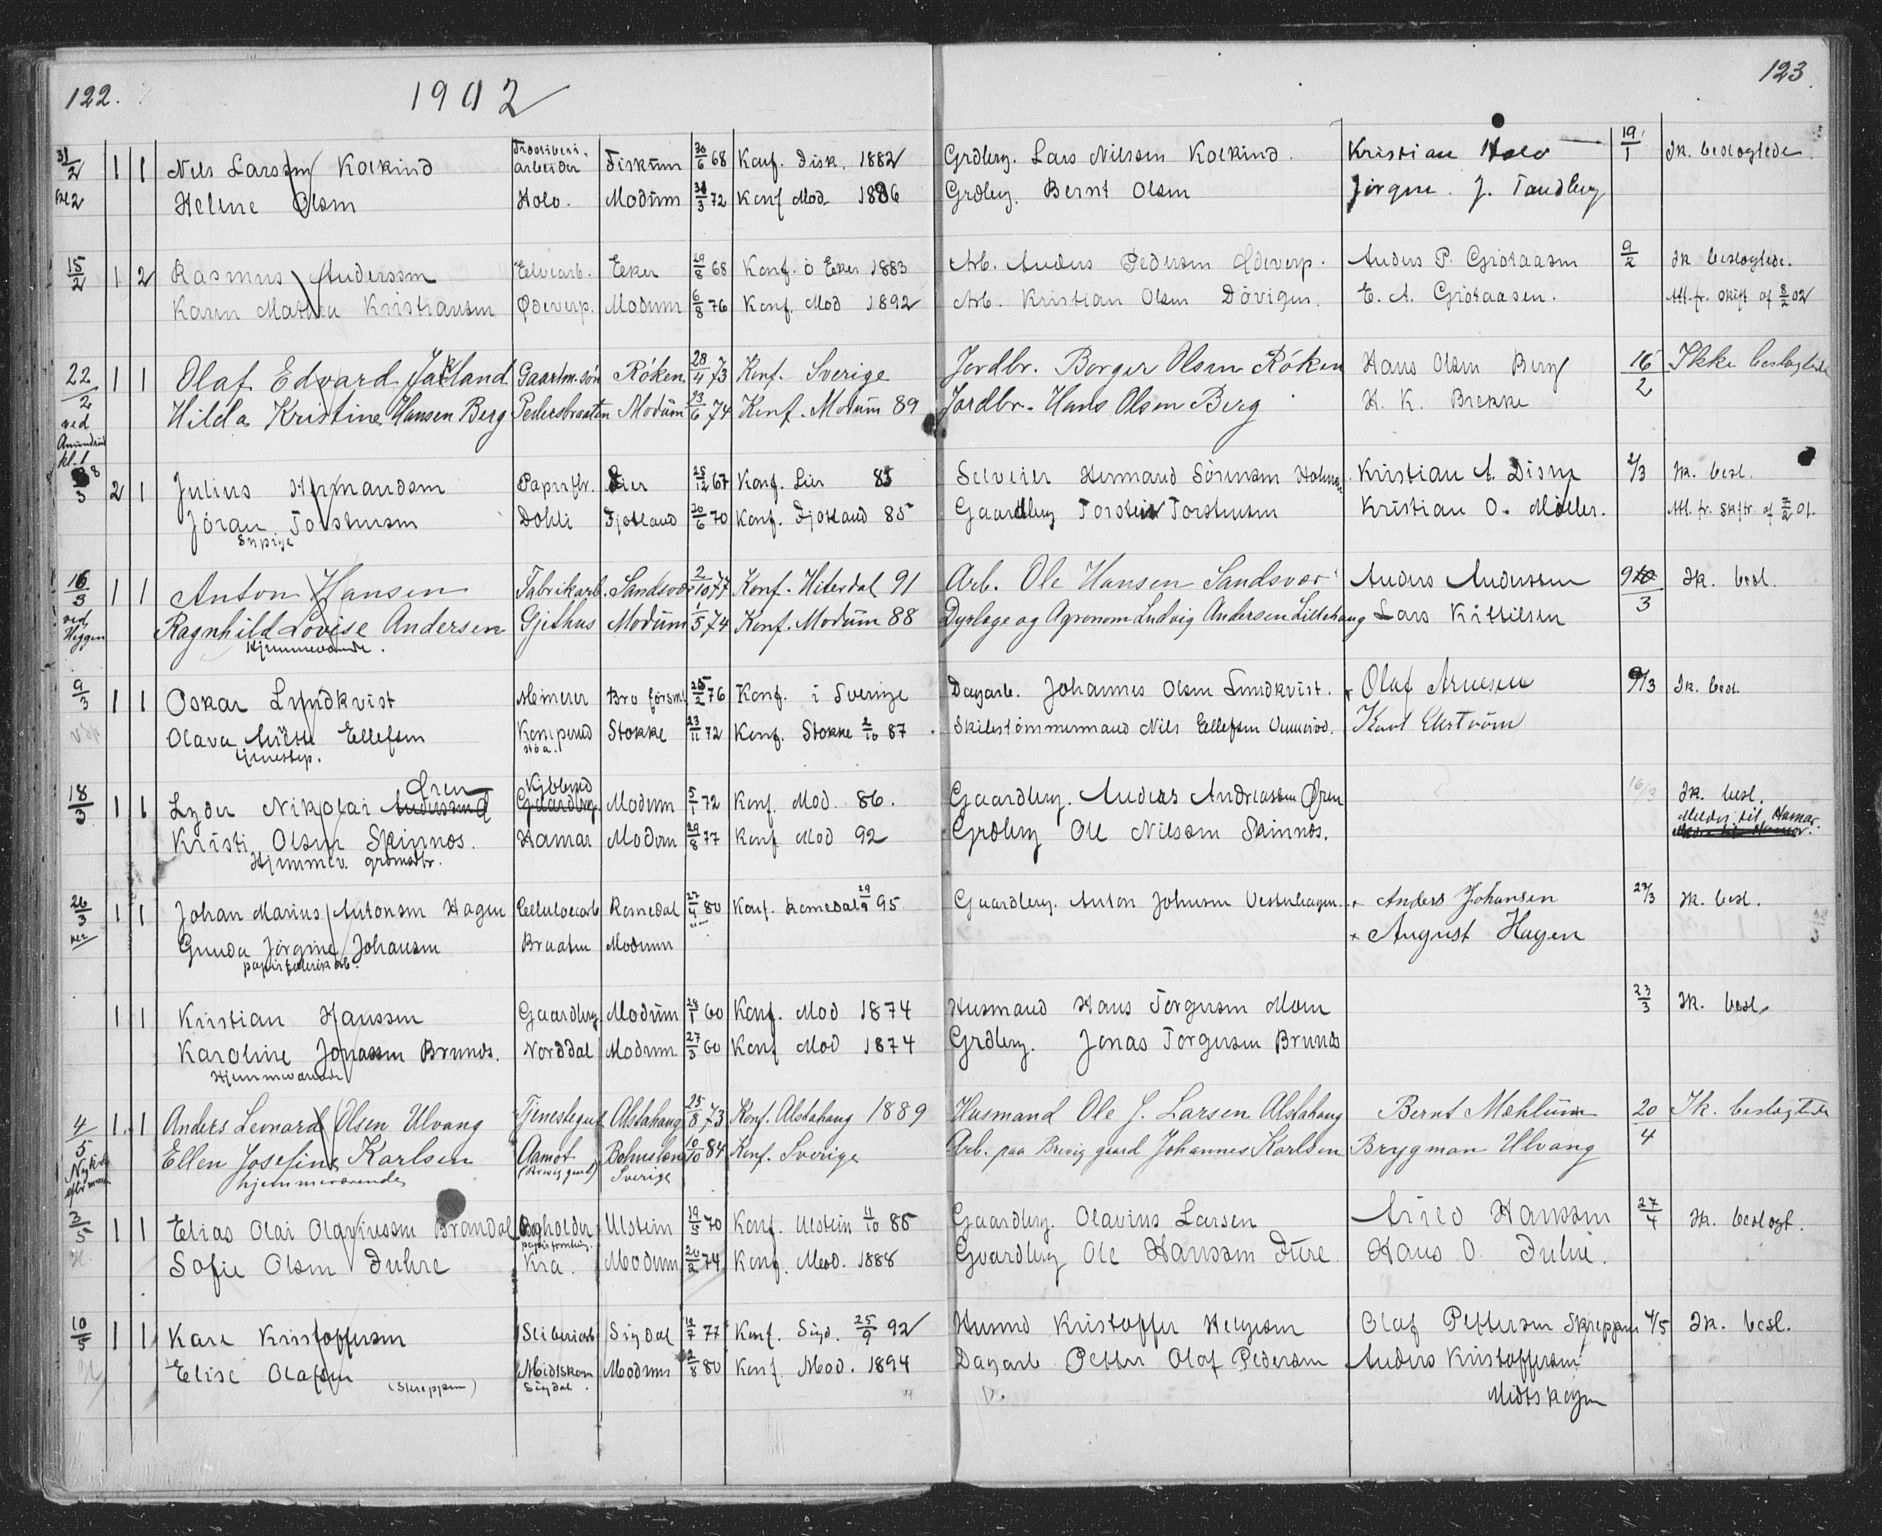 122. 1902 123.
31/2 1 1 Nils Larssøn Kolkind arbeider Fiskum 30/6 68 Konf. Fisk. 1882 Grdbrg. Lars Nilssøn Kolkind. Kristian Holo 19/1 Ik. beslagtede.
Helene Olsen Holo. Modum 72 Konf Mod. 1886 Grdbrg. Bernt Olsen Jørgen. J. Tandberg
15/2 1 2 Rasmus Anderssøn Elvearb. Eker 68 Konf. Ö Eker 1883 Arb. Anders Pedersøn Ødeverp. Anders P. Grötaasen 9/2 Ik beslagtede.
Karen Mathea Kristiansen Ødeverp. Modum 6/8 76 Konf. Mod 1892 Arb. Kristian Olsen Dövigen. E. A. Grötaasen. Att. fr. skift af 8/2 02
22/2 1 1 Olaf Edvard Jakland Gaardm. søn Röken 28/4 73 Konf. Sverige Jordbr. Borger Olsen Röken Hans Olsen Berg 16/2 Ikke beslagtede
ved Hilda Kristine Hansen Berg Pedersbraaten Modum 23/6 74 Konf. Modum 89 Jordbr. Hans Olsen Berg H. K. Brekke
Amundrud
kl. 1
8/3 2 1 Julius Hermandsen Papirfbr. Lier 25/12 67 Konf. Lier 83 Selveier Hermand Sörensøn Kristian A. Disen 2/3 Ik. besl.
Jöran Torstensen Dohli Fjotland 20/6 70 Konf. Fjotland 85 Gaardbrg Torstein Torstensen Kristian O. Møller. Att. fr. skftr. af 2/2 01.
16/3 1 1 Anton Hansen Fabrikarb. Sandsvær 2/10 77 Konf. Hiterdal 91 Arb. Ole Hansen Sandsvær Anders Anderssen 9/3 Ik. besl.
ved Heggen Ragnhild Lovise Andersen Gjethus Modum 1/5 74 Konf. Modum 88 Dyrlæge og Agronom Ludvig Andersen Lillehaug Lars Kittilsen
Hjemmeværende.
9/3 1 1 Oskar Lundkvist Minerer Bro forsml 76 Konf. i Sverige Dagarb. Johannes Olsen Lundkvist. Olaf Arnesen 9/3 Ik. besl.
Olava Ellefsen Stokke 23/11 72 Konf. Stokke 2/10 87 Skibstømmermand Nils Ellefsen Karl Ekström
Tjenestep.
Øren Kjøbmd
18/3 1 1 Lyder Nikolai Anderssen Gaardbrg Modum 5/1 72 Konf. Mod. 86. Gaardbrg. Anders Andreassen Øren 16/3 Ik. besl.
Meldt til Hamar.
Kristi Olsen Skinnes. Hamar Modum 29/8 77 Konf. Mod 92 Grdbrg Ole Nilssøn Skinnes.
Hjemmev. grdmdtr.
26/3 1 1 Johan Marius Antonsen Hagen Cellulosearb Romedal 27/4 80 Konf. Romedal 29/9 95 Gaardbrg. Anton Johnsen Vesterhagen. × Anders Johansen 23/3 Ik. besl.
Gunda Jörgine Johansen Braaten Modum × August Hagen
papirfabrikarb.
1 1 Kristian Hanssen Gaardbrg Modum 60 Konf. Mod 1874 Husmand Hans Torgersen Moen 23/3 Ik. besl.
Karoline Jonassen Brunes. Norddal Modum 27/3 60 Konf Mod 1874 Grdbrg. Jonas Torgersen Brunes
Hjemmeværende
4/5 1 1 Anders Leonard Olsen Ulvang Tjenestegut Alstahaug 25/8 73 Konf. Alstahaug 1889 Husmand Ole J. Larsen Alstahaug Bernt Mæhlum 20/4 Ik. beslagtede
Ellen Josefine Karlsen Aamot Bohuslen 10/10 84 Konf. Sverige Arb. paa Brevig gaard Johannes Karlsen Brygman Ulvang
hjemmeværende (Brevig gaard) Sverige
3/5 1 1 Elias Olai Olaviussen Brandal Bogholder Ulstein 19/5 70 Konf. Ulstein 11/10 85 Gaardbrg. Olavius Larsen Hanssen 27/4 Ik. beslagt.
Sofie Olsen Fuhre Kra. Modum 20/2 74 Konf. Mod. 1888 Gaardbrg Ole Hanssøn Fure. Hans O. Fuhre.
10/5 1 1 Karl Kristoffersen Sliberiarb Sigdal 77 Konf. Sigd. 25/9 92 Husmd Kristoffer Helgesen Olaf Pettersen Skreppen 4/5 Ik. besl.
Elise Olafsen (Skreppen) Midtskogen Sigdal. Modum 2/8 80 Konf. Mod. 1894 Dagarb Petter Olaf Pedersen Anders Kristoffersen
Midtskogen